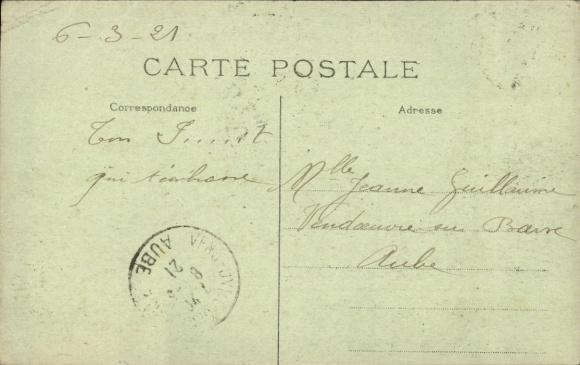 6-3-21
CARTE POSTALE
Correspondance
Adresse
Ton P.....t
qui t'embrasse
Mlle Jeanne Guillaume
Vendoeuvre sur Barse
Aube
AUBE
21